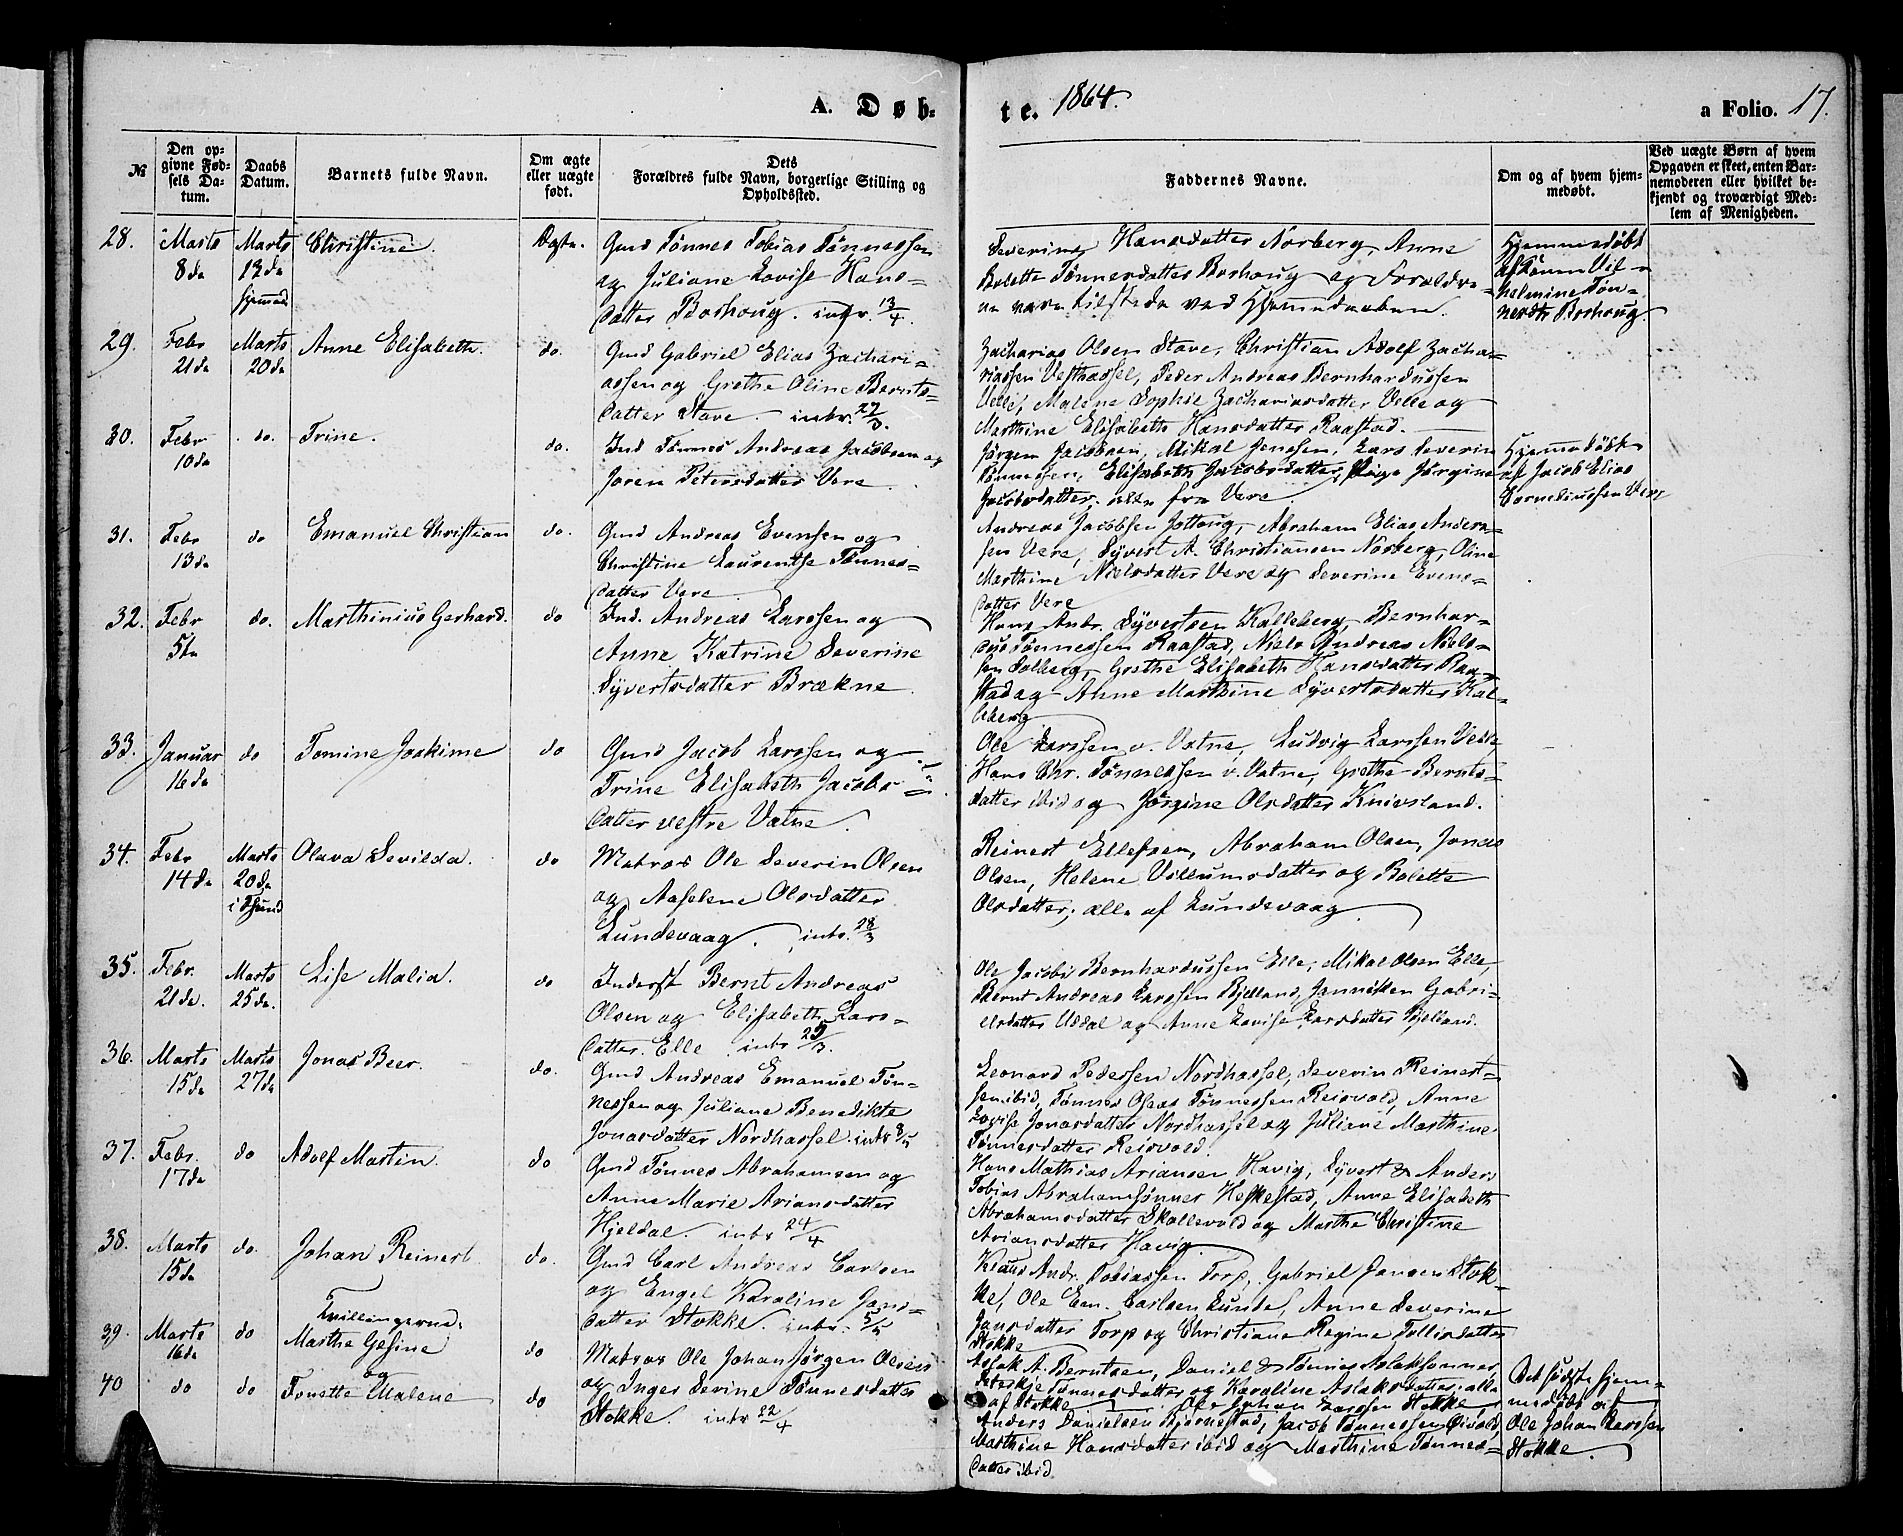 A. Døb-
te. 1864.
a Folio. 17.
№
Den op-
givne Fød-
sels Da-
tum.
Daabs
Datum.
Barnets fulde Navn.
Om ægte
eller uægte
født.
Dets
Forældres fulde Navn, borgerlige Stilling og
Opholdssted.
Faddernes Navne.
Om og af hvem hjem-
medøbt.
Ved uægte Børn af hvem
Opgaven er skeet, enten Bar-
nemoderen eller hvilket be-
kjendt og troværdigt Med-
lem af Menigheden.
28. Marts 8de
Marts 12de hjemmed.
Christine.
Ægte.
Gmd Tønnes Tobias Tønnessen
og Juliane Lovise Hans-
datter Borhoug. intr. 13/4.
Severine Hansdatter Norberg, Anne
Bolette Tønnesdatter Borhoug og Forældre-
ne vare tilstede ved Hjemmedaaben.
Hjemmedøbt
af Vil-
helmine Tøn-
nesdtr Borhoug.
29. Febr 21de
Marts 20de
Anne Elisabeth.
do.
Gmd Gabriel Elias Zachari-
assen og Grethe Oline Bernts-
datter Stave. intr. 27/3.
Zacharias Olsen Stave, Christian Adolf Zacha-
riassen Vesthassel, Peder Andreas Bernhardussen
Velle, Malene Sophie Zachariasdatter Velle og
Marthine Elisabeth Hansdatter Raastad.
30. Febr 10de
do.
Trine.
do.
Ind Tønnes Andreas Jacobsen og
Joren Petersdatter Vere.
Jørgen Jacobsen, Mikal Jensen, Lars Severin
Tønnessen, Elisabeth Jacobsdatter, Pige Jørgine
Jacobsdatter, alle fra Vere.
Hjemmedøbt
af Jacob Elias
Corneliussen Vere
31. Febr 13de
do
Emanuel Christian
do.
Gmd Andreas Evensen og
Christine Laurentse Tønnes-
datter Vere.
Andreas Jacobsen Jottoug, Abraham Elias Anders-
sen Vere, Syvert A. Christiansen Norberg, Oline
Marthine Nielsdatter Vere og Severine Evens-
datter Vere
32. Febr 5te
do.
Marthinius Gerhard.
do
Ind. Andreas Larssen og
Anne Katrine Severine
Syvertsdatter Brækne.
Hans Andr. Syvertsen Kalleberg, Bernhar-
dus Tønnessen Raastad, Niels Andreas Niels-
sen Solberg, Grethe Elisabeth Hansdatter Raa-
stad og Anne Marthine Syvertsdatter Kal-
leberg
33. Januar 16de
do
Tomine Joakime
do
Gmd Jacob Larssen og
Trine Elisabeth Jacobs-
datter vestre Vatne.
Ole Larssen v. Vatne, Ludvig Larssen Velle
Hans Chr. Tønnessen v. Vatne, Grethe Bernts-
datter ibid og Jørgine Olsdatter Knivsland.
34. Febr 14de
Marts 20de i Sund
Olava Sevilda.
do
Matros Ole Severin Olsen
og Aaselene Olsdatter
Lundevaag. intr. 28/3
Reinert Ellefsen, Abraham Olsen, Jonas
Olsen, Helene Villumsdatter og Bolette
Olsdatter, alle af Lundevaag
35. Febr. 21de.
Marts 25de.
Lise Malia.
do
Inderst Bernt Andreas
Olsen og Elisabeth Lars-
datter Elle. intr 25/3.
Ole Jacobi Bernhardussen Elle, Mikal Olsen Elle,
Bernt Andreas Larssen Bjelland, Janniken Gabri-
elsdatter Uddal og Anne Lovise Larsdatter Bjelland.
36. Marts 15de
Marts 27de
Jonas Beer.
do.
Gmd Andreas Emanuel Tøn-
nessen og Juliane Benedikte
Jonasdatter Nordhassel. intr 8/5
Leonard Pedersen Nordhassel, Severin Reinert-
sen ibid, Tønnes Olaus Tønnessen Reisvold, Anne
Lovise Jonasdatter Nordhassel og Juliane Marthine
Tønnesdatter Reisvold.
37. Febr. 17de
do
Adolf Martin.
do
Gmd Tønnes Abrahamsen og
Anne Marie Ariansdatter
Hjeldal. intr 24/4
Hans Mathias Ariansen Havig, Syvert & Anders
Tobias Abrahamsønner Heskestad, Anne Elisabeth
Abrahamsdatter Skallevold og Marthe Christine
Ariansdatter Havig.
38. Marts 15de
do.
Johan Reinert.
do.
Gmd Carl Andreas Carlsen
og Engel Karoline Jans-
datter Stokke. intr. 5/5
Klaus Andr. Tobiassen Torp, Gabriel Jansen Stok-
ke, Ole Em. Carlsen Lunde, Anne Severine
Jansdatter Torp og Christiane Regine Tollisdatter
Stokke
39. Marts 16de
do
Tvillingerne.
Marthe Gesine
og
do
Matros Ole Johan Jørgen Olsen
og Inger Serine Tønnesdatter
Stokke. intr 22/4
Aslak A. Berntsen, Daniel & Tønnes Aslaksønner
Tønnesdatter og Karoline Aslaksdatter, alle
af Stokke
40 do
do
Tonette Malene
do
Ole Johan Larssen Stokke,
Anders Danielsen Bjørnestad, Jacob Tønnessen
Marthine Hansdatter ibid og Marthine Tønnes-
datter ibid
Det sidste hjem-
medøbt af
Ole Johan Larssen
Stokke.